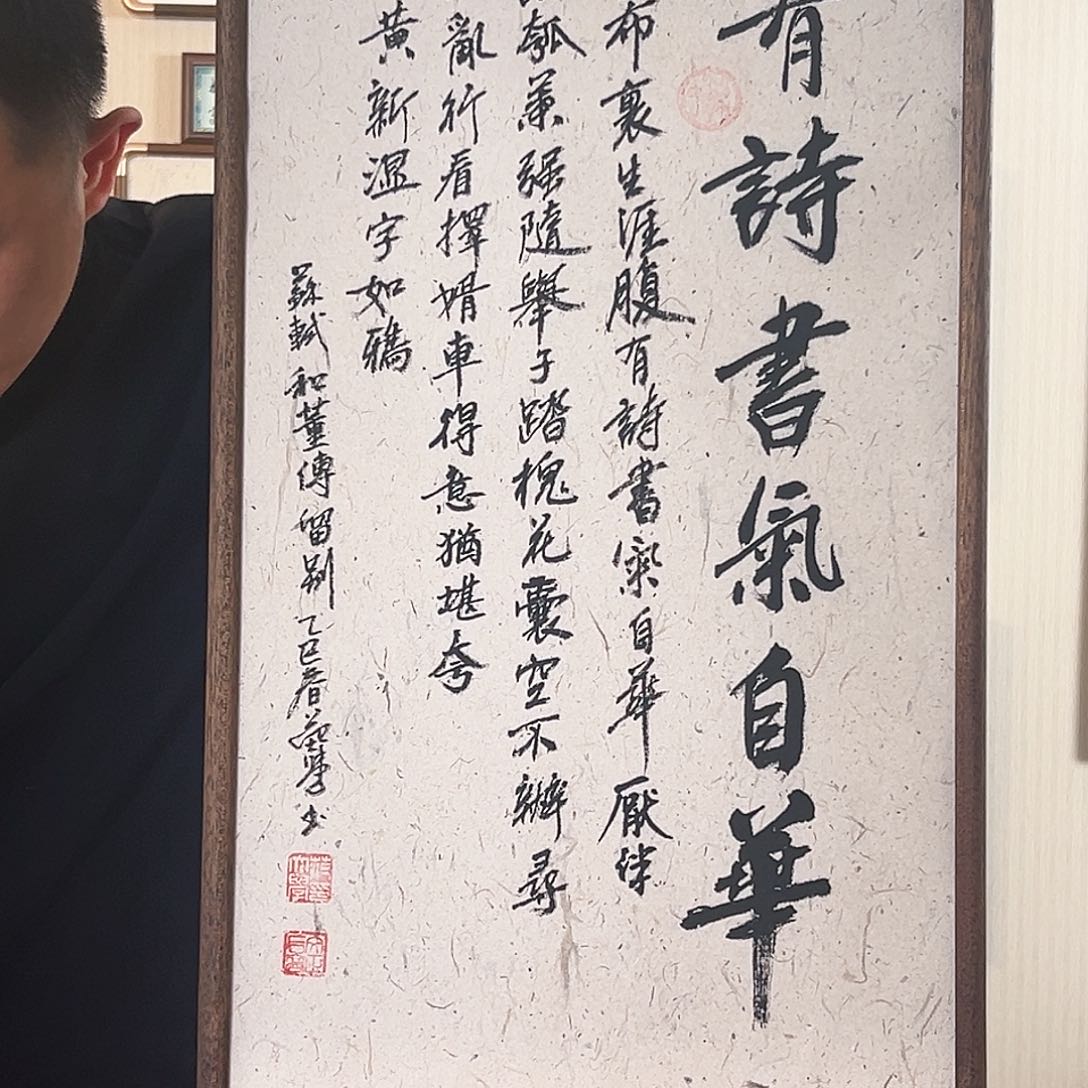 有詩書氣自華
布裹生涯腹有詩書氣自華厭伴
瓠葉强隨舉子踏槐花囊空不辦尋
亂行看擇婿車得意猶堪夸
黃新濕字如鴉
蘇軾和董傳留別乙巳春
書